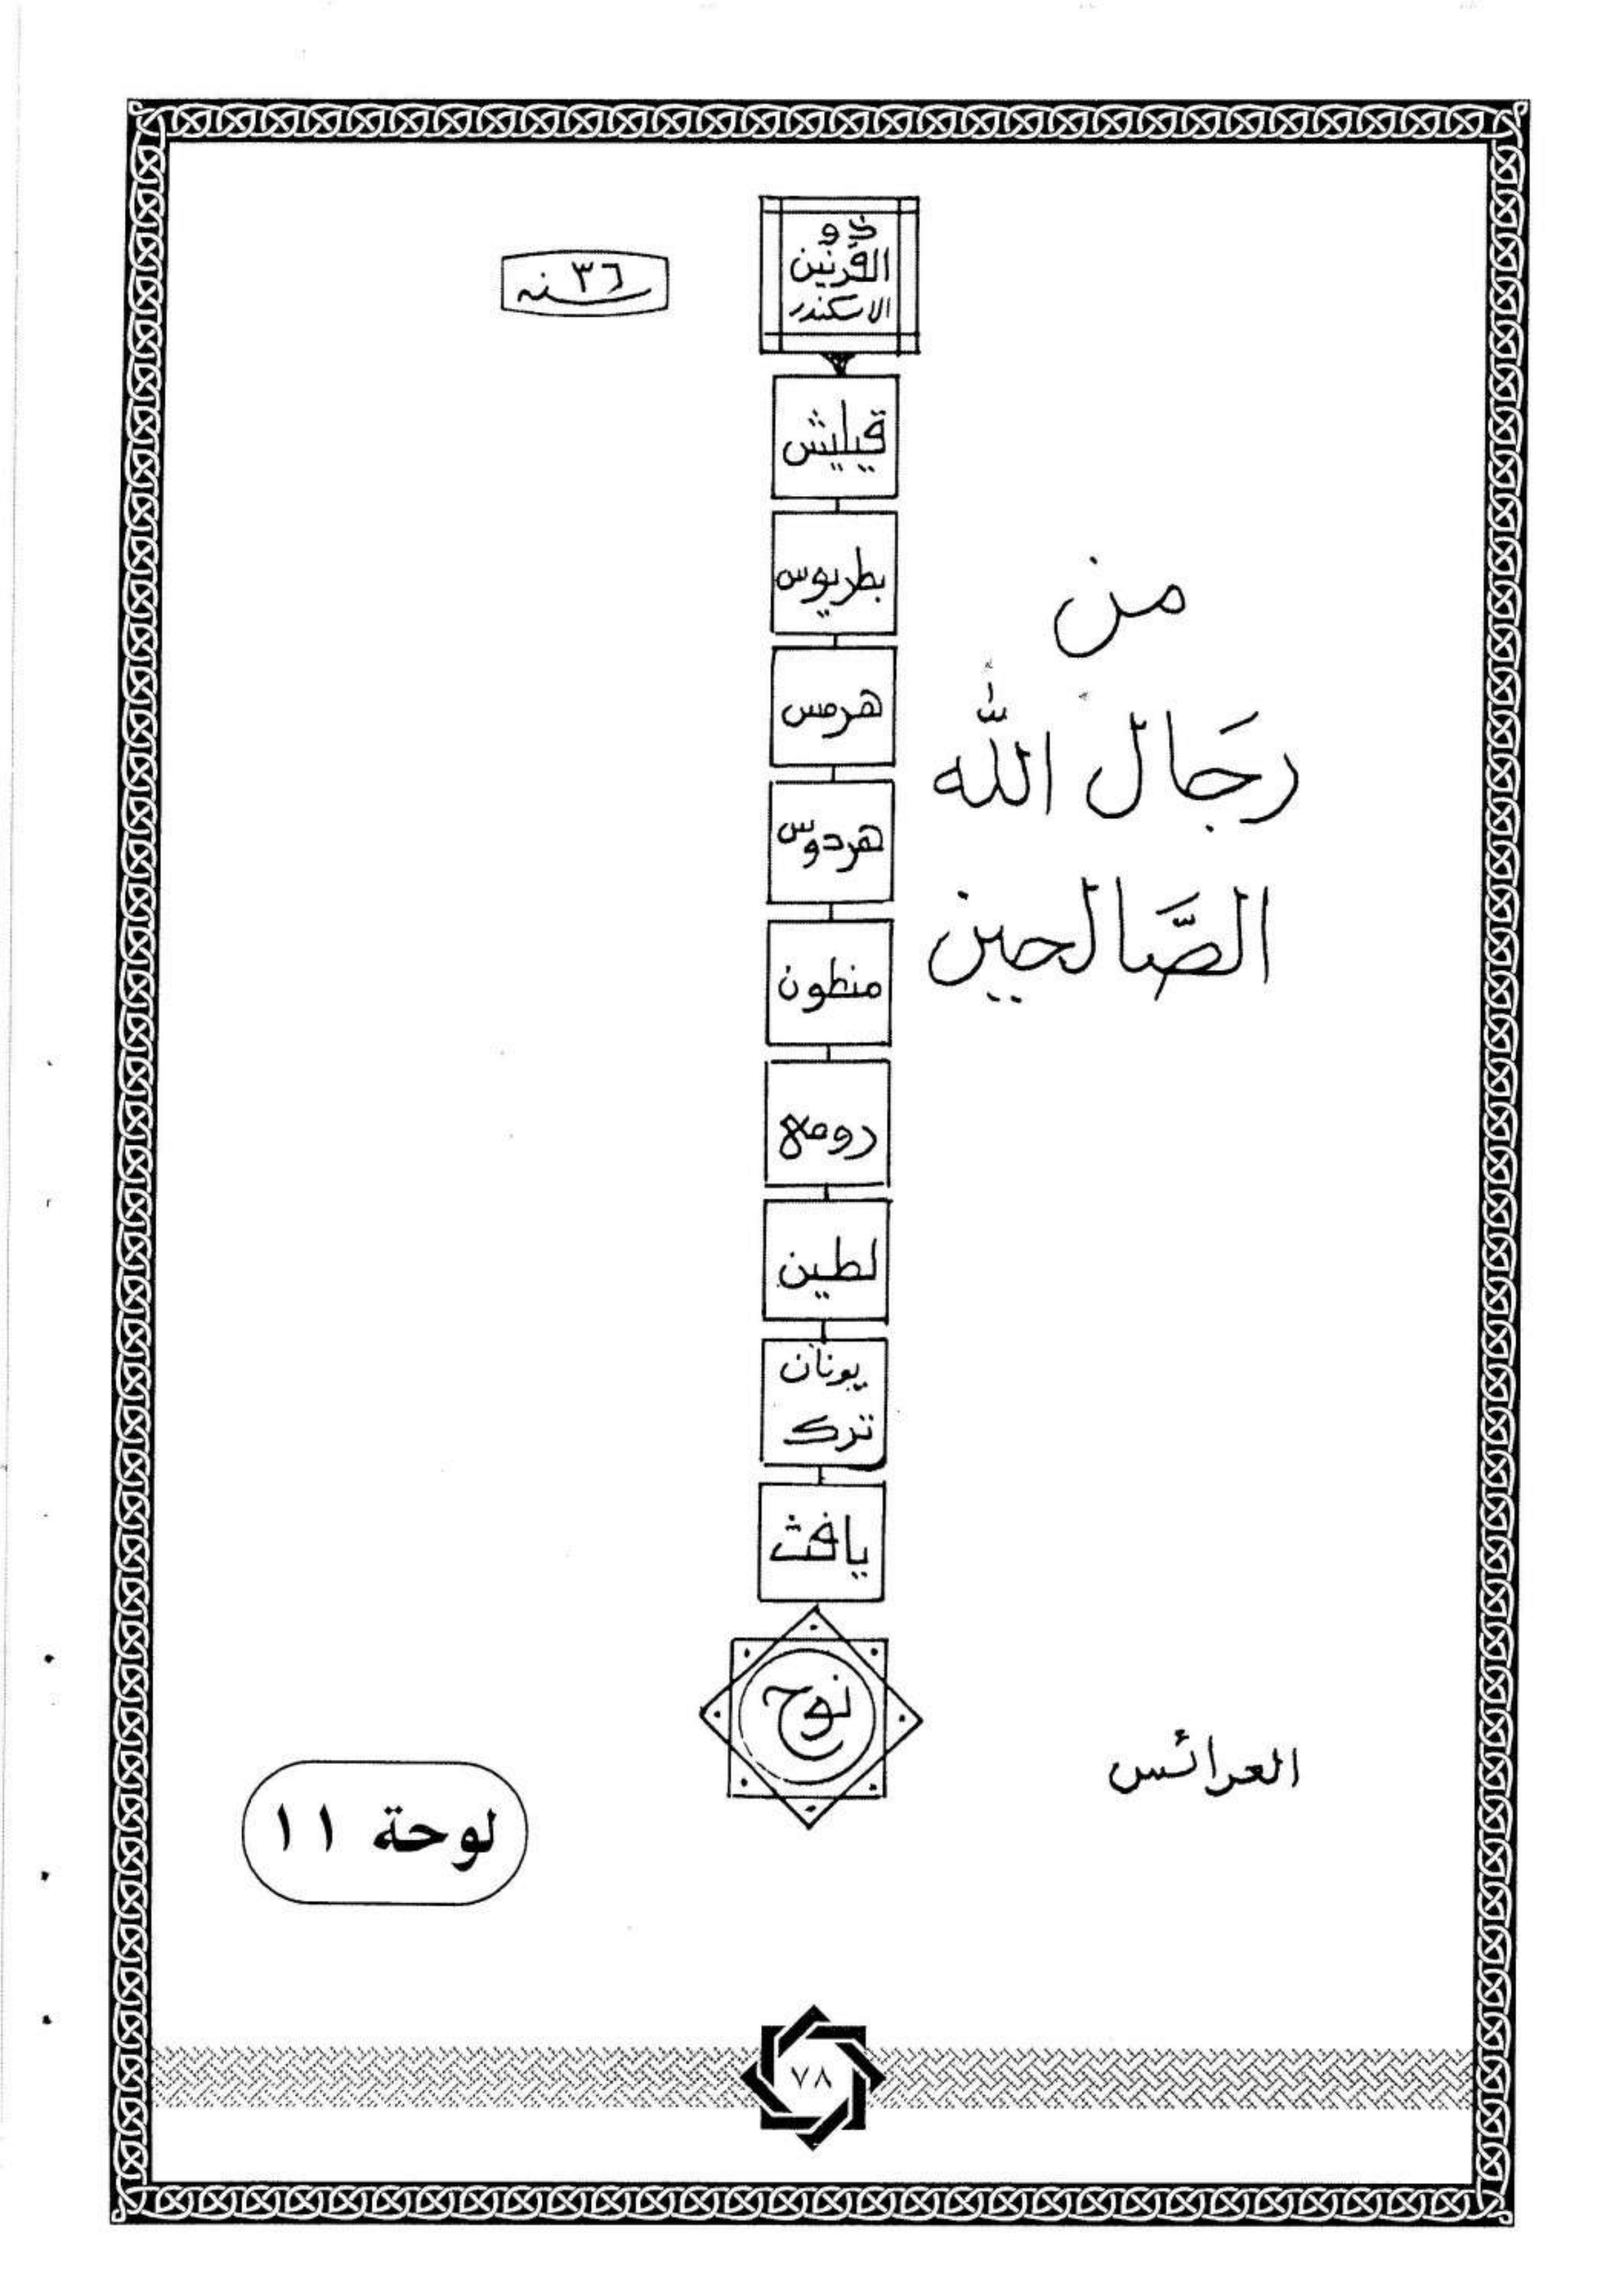 ذو
القرنين
الاسكندر
٣٦ سنه
قيليش
بطريوس
هرمس
هردوس
منطون
رومي
لطين
يونان
ترك
يافث
نوح
من
رجَال اللّٰه
الصَّالحين
العرائس
لوحة ١١
٧٨